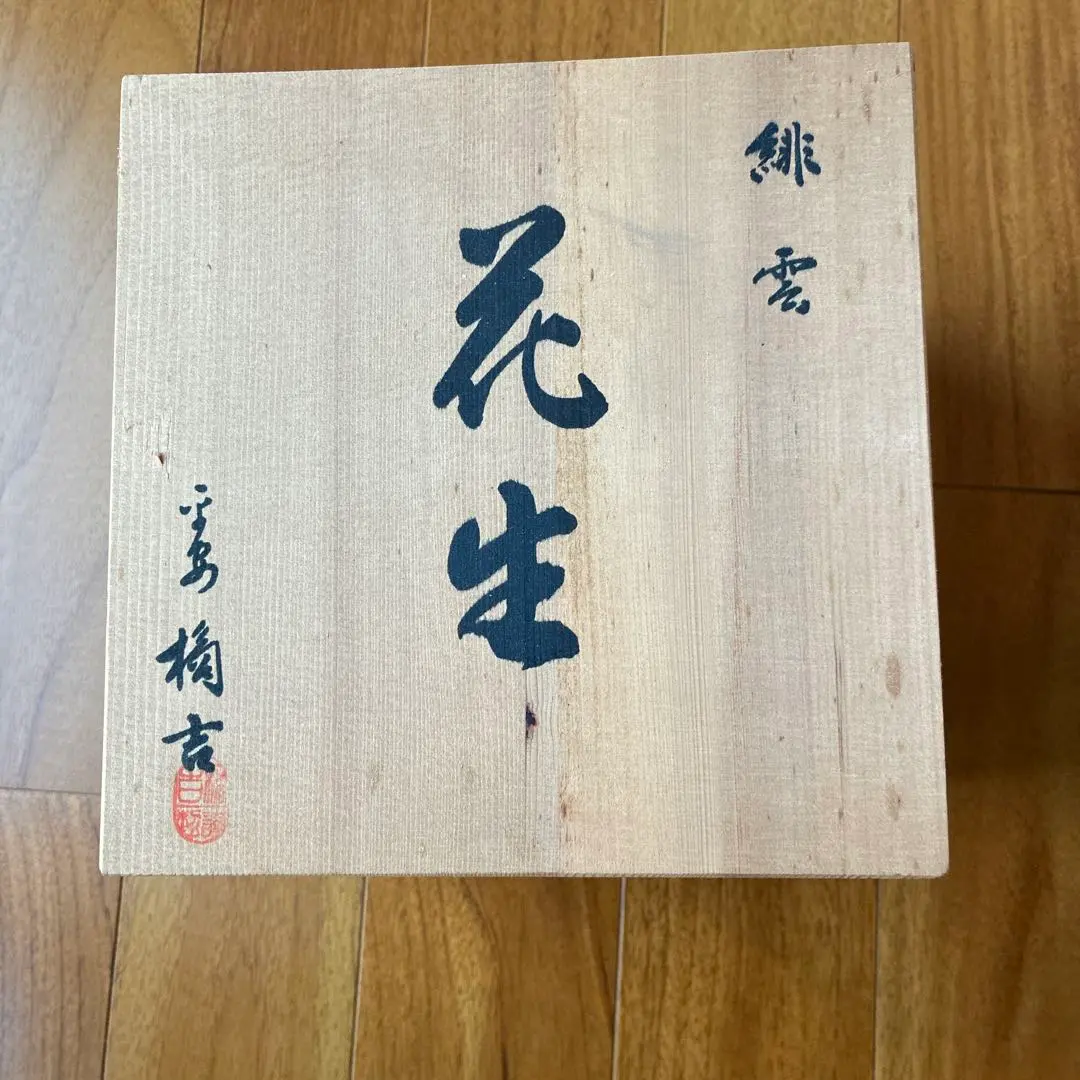 緋雲
花生
平安 橘吉